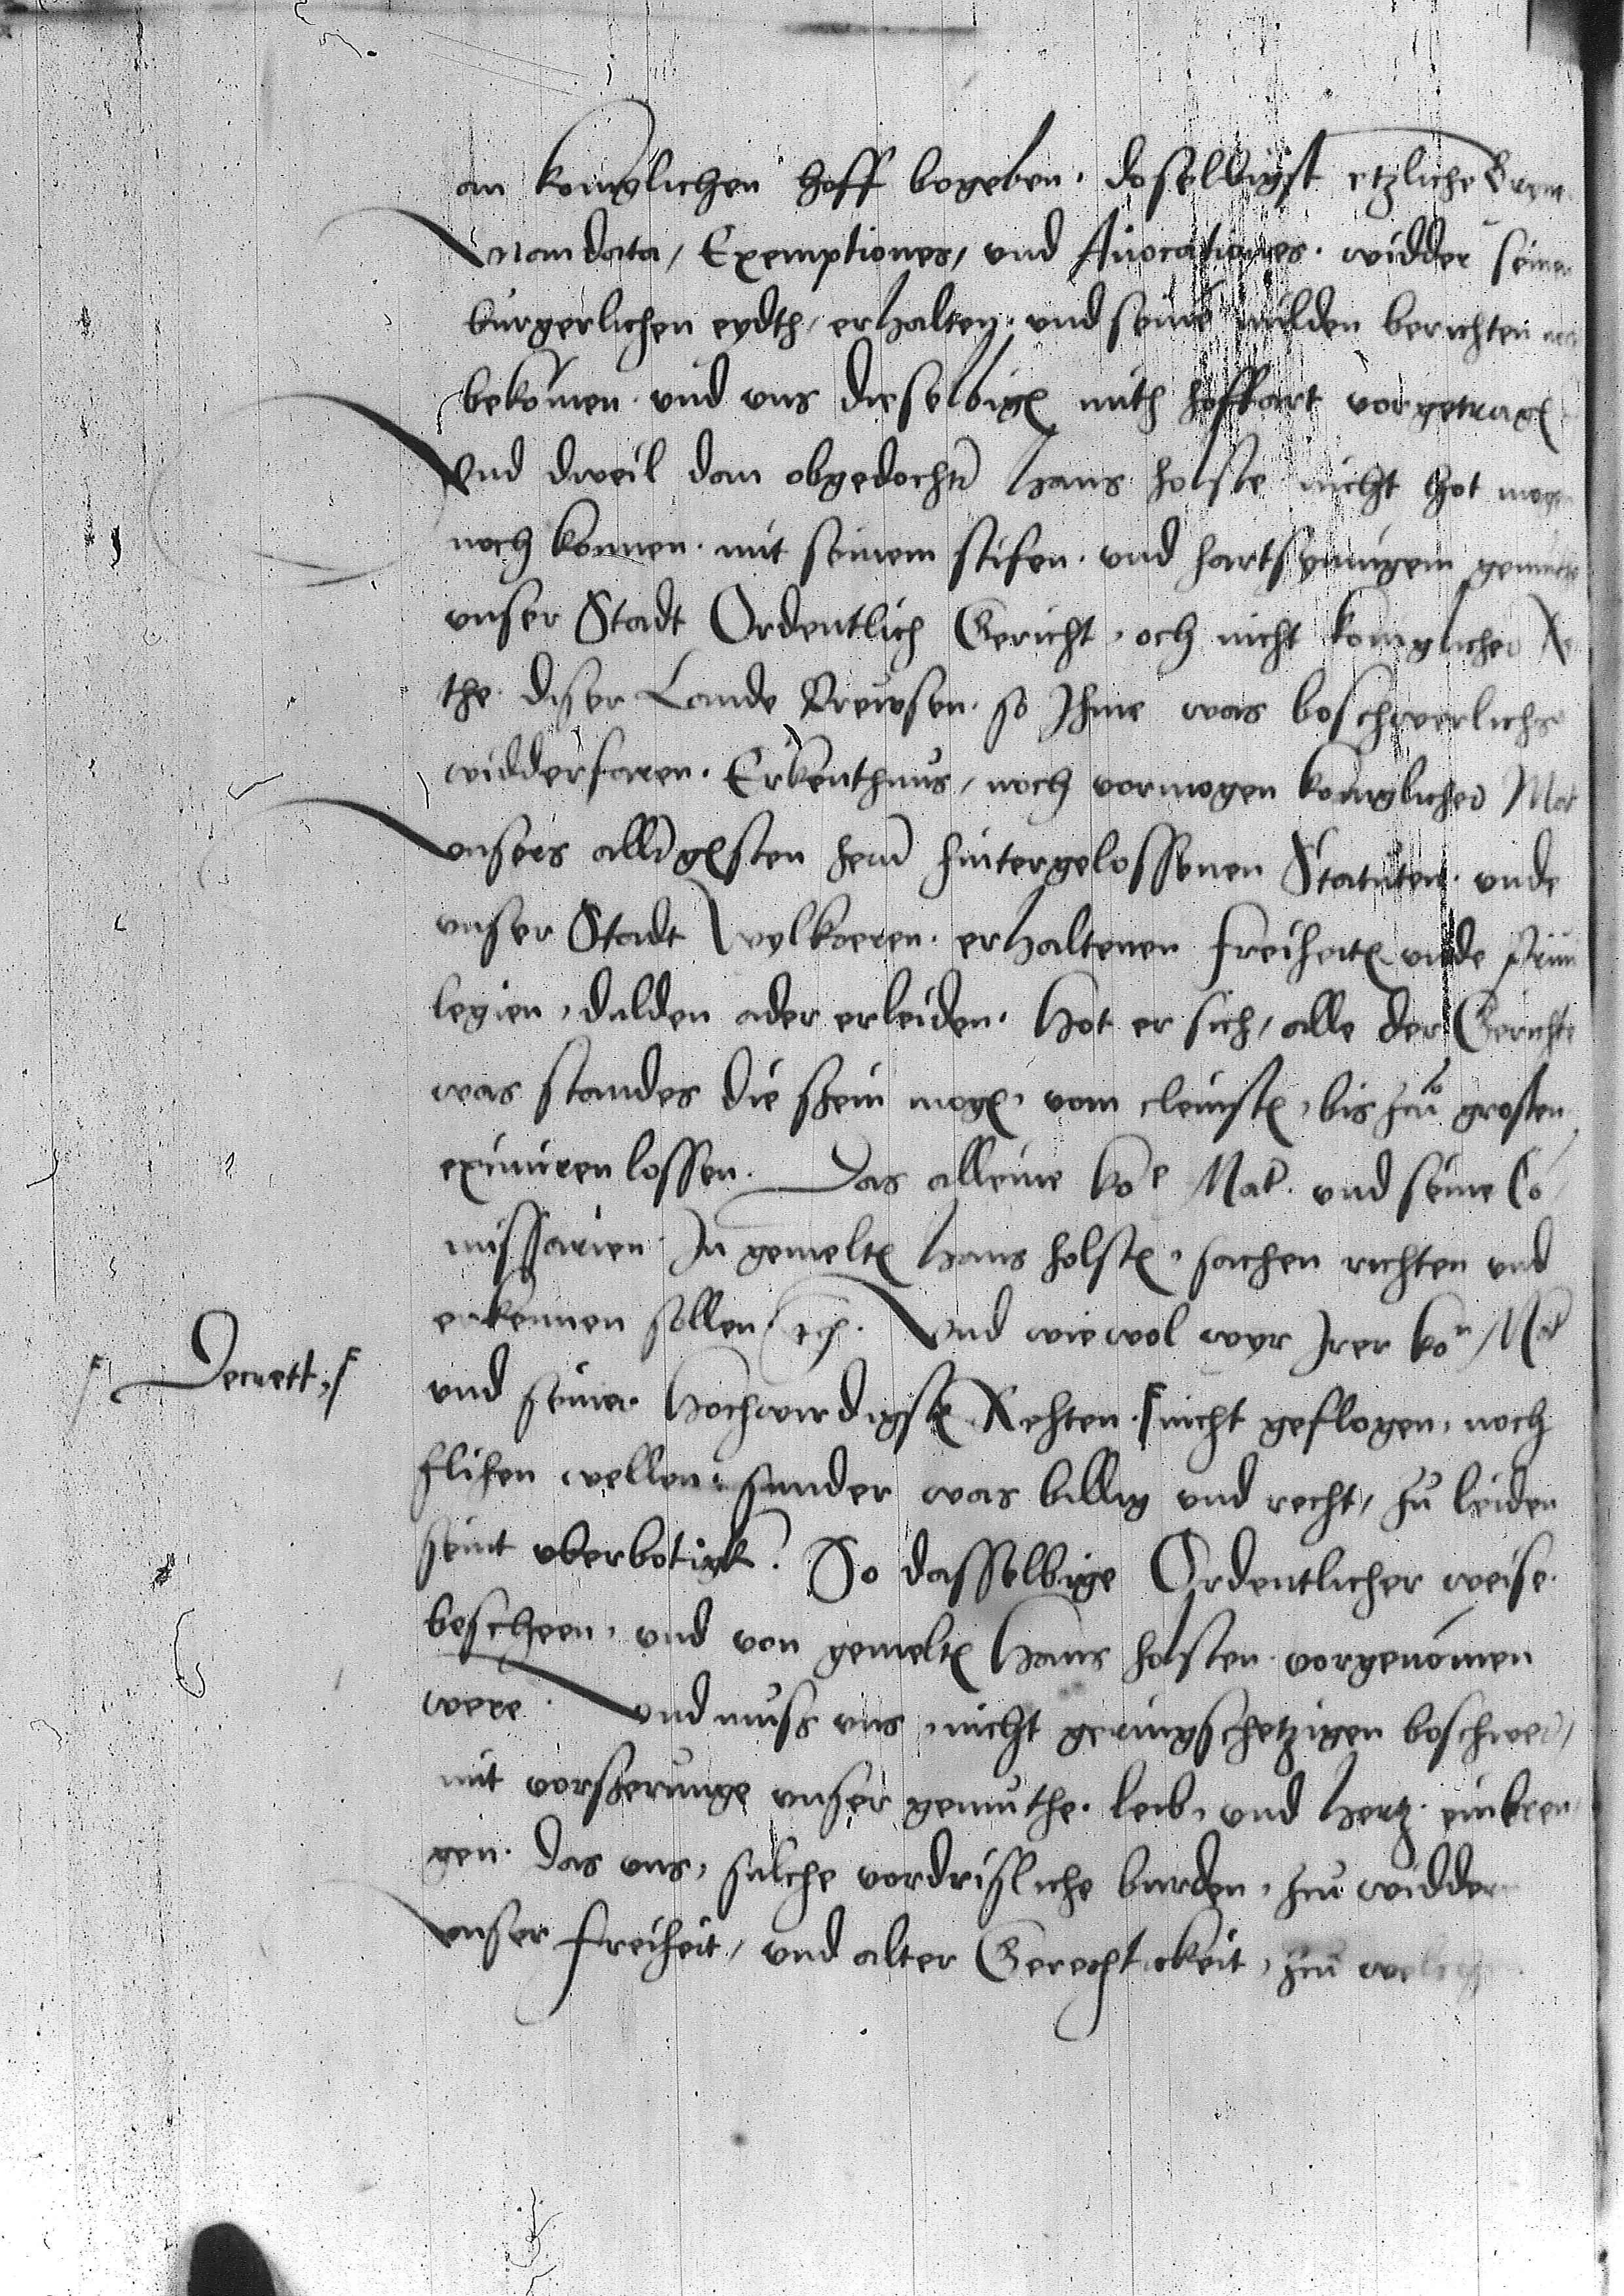 an koniglichen hoff begeben. doselbigst etzliche
Mandata, Exemptiones, vnd Auocationes. widder seinen
burgerlichen eydth, erhalten. vnd seine milden berichten
bekomen. vnd vns dieselbige mith hoffart vorgetragen
Vnd dweil dan obgedochter Hans Holste nicht hot mogen
noch konnen. mit seinem stifen. vnd hartsynnigem gemute
vnser Stadt Ordentlich Gericht, och nicht koniglicher Re
the. diser Lande Preussen. so Ihme was beschwerlichs
widderfaren. Erkenthnus, noch vormogen koniglicher Mat
vnsers allergsten hern hintergelossenen Statuten. vnde
vnser Stadt Wylkoeren. erhaltenen freiheiten vnde priui
legien, dulden ader erleiden. Hot er sich, alle der Gerichte
was standes die sein mogen, vom cleinsten, bis zum grosten
eximiren lossen. Das alleine koe Mat. vnd seine Co
missarien. In gemelten Hans Holsten, sachen richten vnd
erkennen sollen etc. Vnd wiewol wyr Irer kon Mat
Decrett,
vnd seiner Hochwirdigsten Rehten. nicht geflogen, noch
flihen wellen, sunder was billig vnd recht, zu leiden
seint vberbotigk. So dasselbige Ordentlicher weise.
bescheen, vnd von gemelten Hans Holsten. vorgenomen
were. Vnd muss vns, nicht geringschetzigen beschwer,
mit vorserunge vnser gemuthe. leib, vnd hertz. einbren
gen. das vns, sulche vordrisliche burden, zu widder
vnser freiheit, vnd alter Gerechtickeit, zu